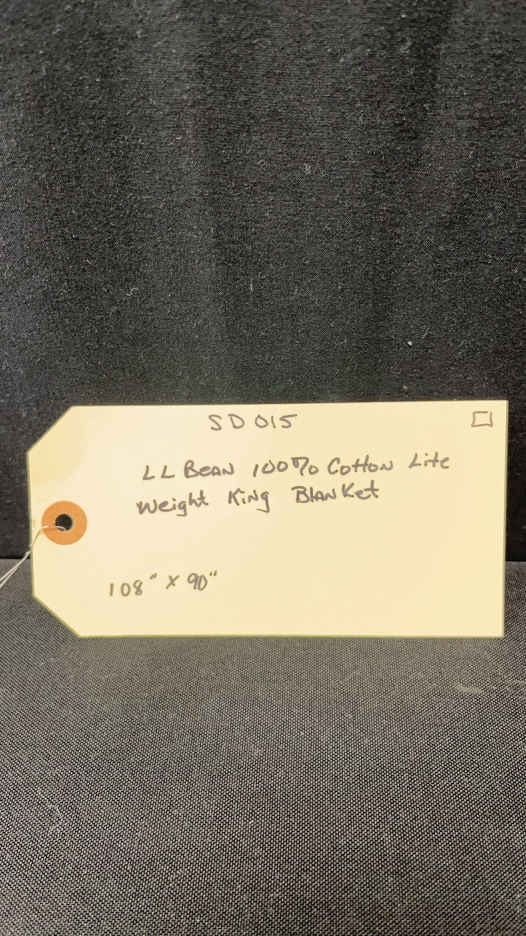 SD015
LL Bean 100% Cotton Lite
Weight King Blanket
108" x 90"